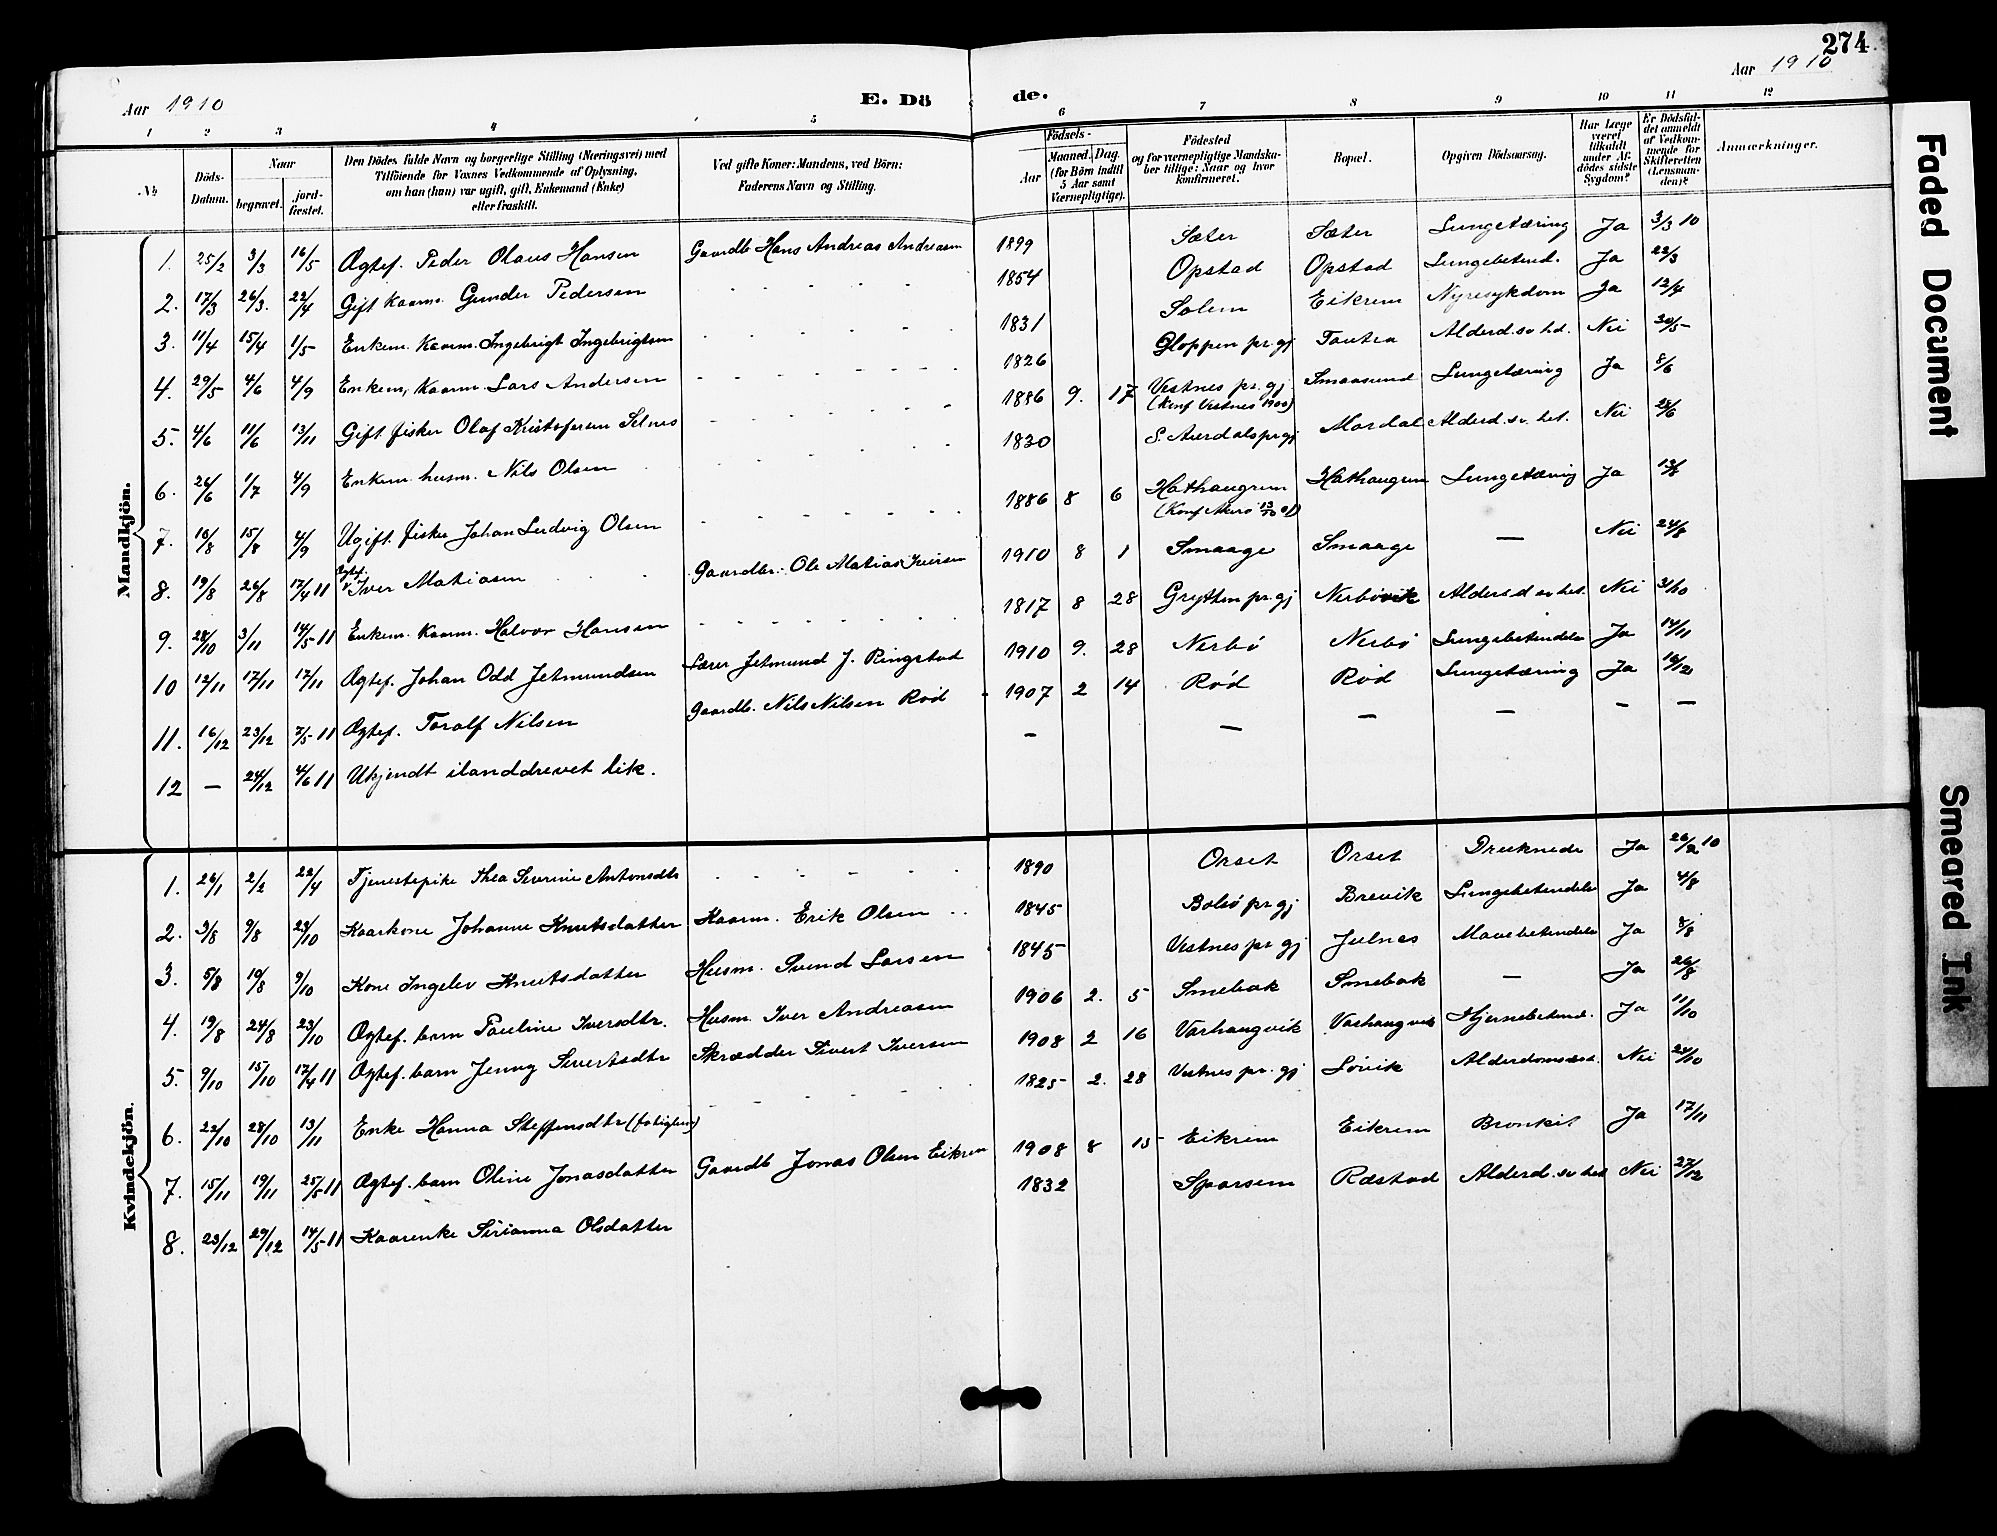 274
Aar 1910
E. Dö de.
Aar 1910
1 2 3 4 5 6 7 8 9 10 11 12
No
Döds-Datum.
Naar
begravet.
jord-fæstet.
Den Dödes fulde Navn og borgerlige Stilling (Næringsvei) med
Tilföiende for Voxnes Vedkommende af Oplysning,
om han (hun) var ugift, gift, Enkemand (Enke)
eller fraskilt.
Ved gifte Koner: Mandens, ved Börn:
Faderens Navn og Stilling.
Födsels-
Aar
Maaned. Dag.
(for Börn indtil
5 Aar samt
Værnepligtige).
Födested
og for værnepligtige Mandska-
ber tillige: Naar og hvor
konfirmeret.
Bopæl.
Opgiven Dödsaarsag.
Har Læge
været
tilkaldt
under Af-
dödes sidste
Sygdom?
Er Dödsfal-
det anmeldt
af Vedkom-
mende for
Skifteretten
(Lensman-
den)?
Anmerkninger.
Mandkjön.
1. 25/2 3/3 16/5 Ægtef. Peder Olaus Hansen Gaardb Hans Andreas Andreasen 1899 Sæter Sæter Lungetæring Ja 3/3 10
2. 17/3 26/3. 22/4 Gift kaarm. Gunder Pedersen 1854 Opstad Opstad Lungebetend. Ja 22/3
3. 11/4 15/4 1/5 Enkem. Kaarm. Ingebrigt Ingebrigtsen 1831 Solem Eikrem Nyresykdom Ja 12/4
4. 29/5 4/6 4/9 Enkem, Kaarm Lars Andersen 1826 Gloppen pr.gj Tautra Alderd.sv.hd. Nei 30/5
5. 4/6 11/6 13/11 Gift fisker Olaf Kristofersen Selnes 1886 9. 17 Vestnes pr.gj Smaasund Lungetæring Ja 8/6
(Konf Vestnes 1900)
6. 26/6 1/7 4/9 Enkem. husm. Nils Olsen 1830 S. Aurdals pr gj Mordal Alderd.sv.het. Nei 28/6
7. 10/8 15/8 4/9 Ugift fisker Johan Ludvig Olsen 1886 8 6 Hathaugren Hathaugren Lungetæring Ja
8. 19/8 26/8 17/4 11 Ægtef. Iver Matiasen Gaardbr. Ole Matias Iversen 1910 8 1 Smaage Smaage — Nei 24/8
9. 28/10 3/11 14/5 11 Enkem. Kaarm. Halvor Hansen 1817 8 28 Grytten pr.gj Nerbövik Alderd sv het. Nei 31/10
10 12/11 17/11 17/11 Ægtef. Johan Odd Jetmundsen Lærer Jetmund J. Ringstad 1910 9. 28 Nerbö Nerbö Lungebetendelse Ja 14/11
11. 16/12 23/12 7/5 11 Ægtef. Toralf Nilsen Gaardb. Nils Nilsen Röd 1907 2 14 Röd Röd Lungetæring Ja
12 — 24/12 4/6 11 Ukjendt ilanddrevet lik. — — — — — —
Kvindekjön.
1. 26/1 2/2 22/4 Tjenestepike Thea Severine Antonsdtr 1890 Orset Orset Druknede Ja 26/2 10
2. 3/8 9/8 23/10 Kaarkone Johanne Knutsdatter Kaarm. Erik Olsen 1845 Bolsö pr gj Brevik Lungebetendelse Ja 4/8
3. 5/8 19/8 9/10 Kone Ingelev Knutsdatter Husm. Svend Larsen 1845 Vestnes pr gj Julnes Mavebetendelse Ja 8/8
4. 19/8 24/8 23/10 Ægtef. barn Pauline Iversdtr. Husm. Iver Andreasen 1906 2. 5 Smebak Smebak — Ja 26/8
5. 9/10 15/10 17/4 11 Ægtef. barn Jenny Sivertsdtr Skrædder Sivert Iversen 1908 2 16 Varhaugvik Varhaugvik Hjernebetend. Ja 11/10
6. 22/10 28/10 13/11 Enke Hanna Steffensdtr (fatiglem) 1825 2. 28 Vestnes pr. gj Lövik Nei 24/10
7. 15/11 19/11 25/5 11 Ægtef. barn Oline Jonasdatter Gaardb Jonas Olsen Eikrem 1908 8 15 Eikrem Eikrem Bronkit Ja 17/11
8. 23/12 29/12 14/5 11 Kaarenke Sirianna Olsdatter 1832 Sporsem Ræstad Alderd.sv.het Nei 27/12
Faded Document
Smeared Ink